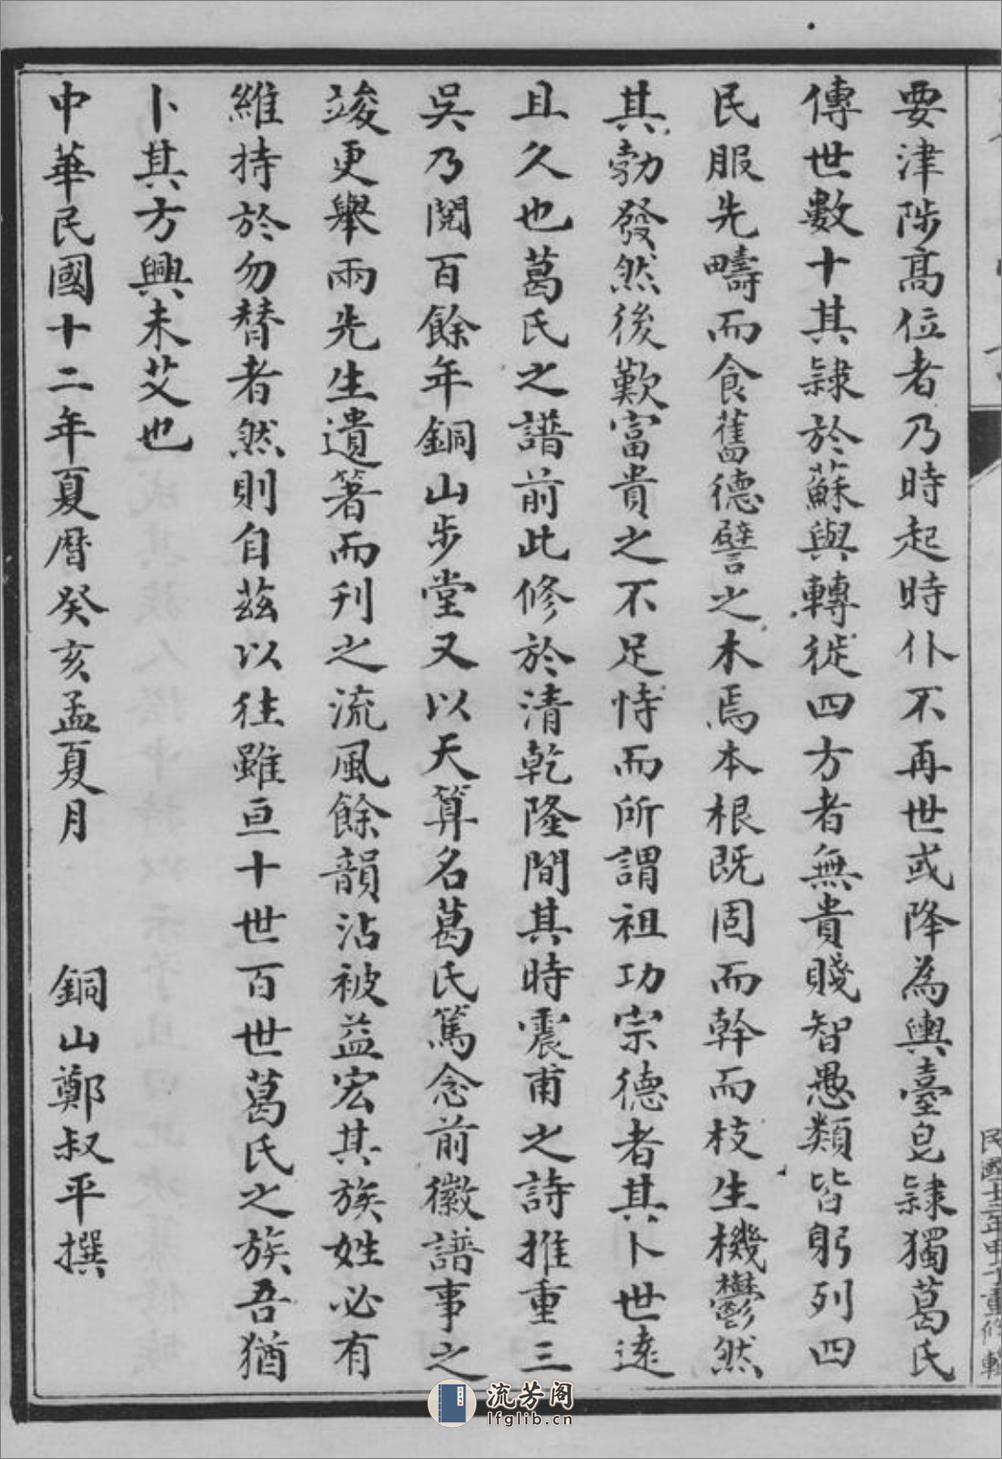 要津陟高位者乃時起時仆不再世或降為輿臺皂隸獨葛氏
傳世數十其隸於蘇與轉徙四方者無貴賤智愚類皆躬列四
民服先疇而食舊德譬之木焉本根既固而幹而枝生機鬱然
其勃發然後歎富貴之不足恃而所謂祖功宗德者其卜世遠
且久也葛氏之譜前此修於清乾隆間其時震甫之詩推重三
吳乃閱百餘年銅山步堂又以天算名葛氏篤念前徽譜事之
竣更舉兩先生遺箸而刊之流風餘韻沾被益宏其族姓必有
維持於勿替者然則自茲以往雖亘十世百世葛氏之族吾猶
卜其方興未艾也
中華民國十二年夏曆癸亥孟夏月 銅山鄭叔平撰
重修輯
流芳阁
lfglib.cn